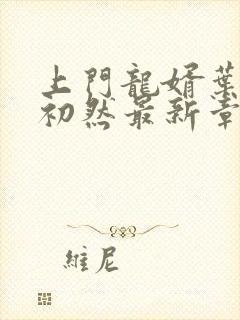 上門龍婿葉
初然最新章
維尼